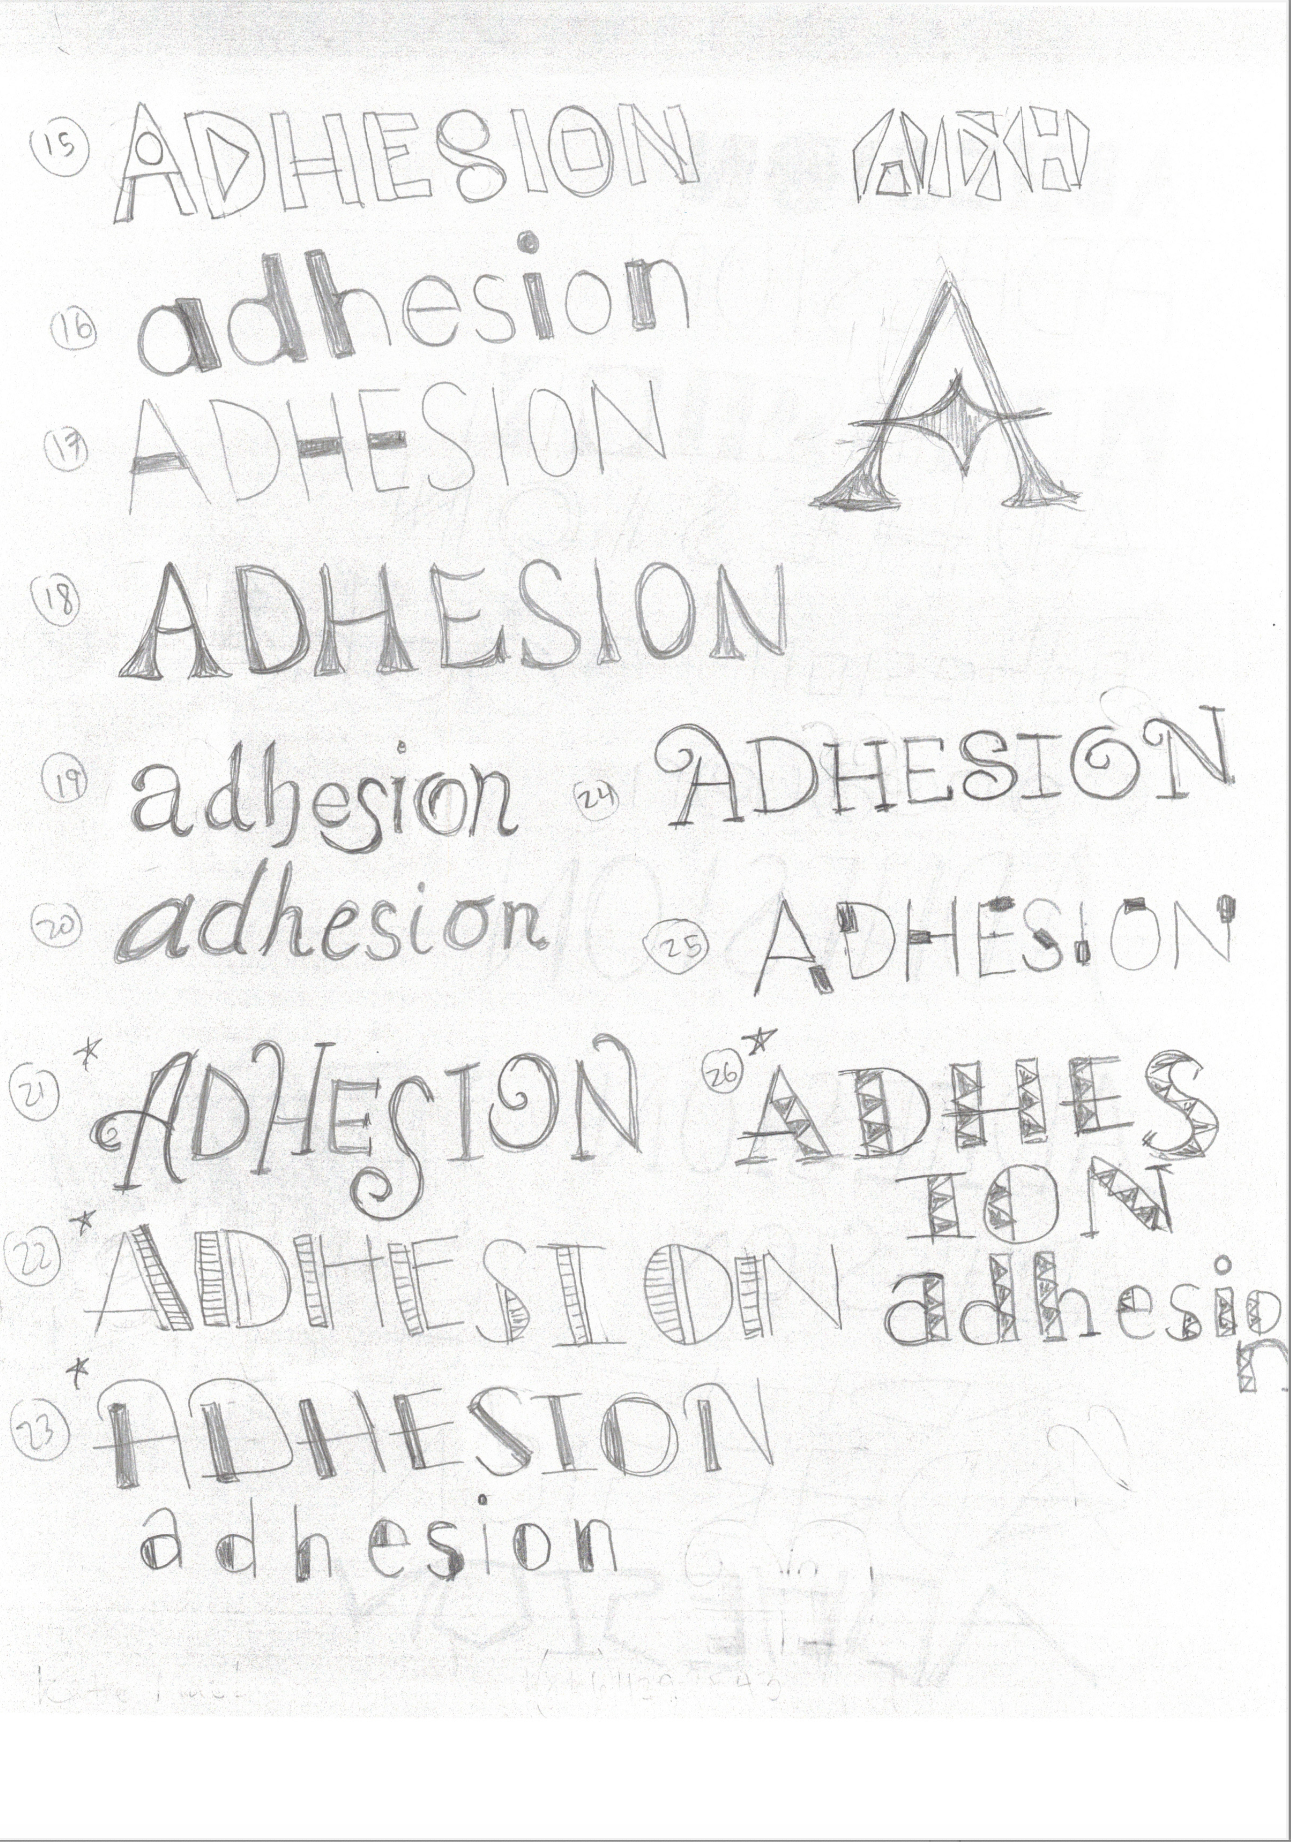 15 ADHESION
16 adhesion
17 ADHESION
A
18 ADHESION
19 adhesion
24 ADHESION
20 adhesion
25 ADHESION
21 ADHESION
26 ADHES
ION
adhesio
n
22 ADHESION
23 ADHESION
adhesion